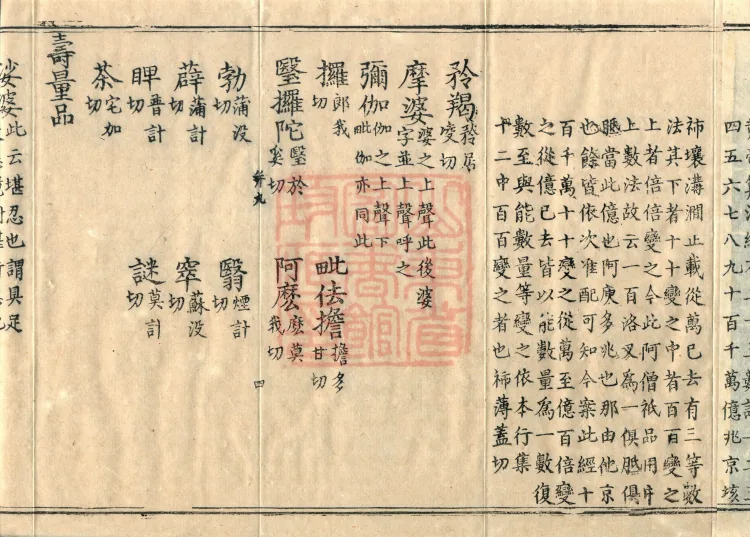 四五六七八九十百千萬億兆京垓
秭壤溝澗正載從萬已去有三等數
法其下者十十變之中者百百變之
上者倍倍變之今此阿僧祇品用中
上數法故云一百洛叉爲一俱胝俱
胝當此億也阿庾多兆也那由他京
也餘皆依次准配可知今案此經十
百千萬十十變之從萬至億百倍變
之從億已去皆以能數量爲一數復
數至與能數量等變之依本行集
十二中百百變之者也秭薄蓋切
矜羯矜居變切
摩婆婆之上聲此後婆字並上聲呼之
彌伽伽之上聲下毗伽亦同此
攞郎我切 毗佉擔擔多甘切
毉攞陀毉於奚切 阿麼麼莫我切
勃蒲没切 翳煙計切
薜蒲計切 窣蘇没切
睥普計切 謎莫計切
茶宅加切
壽量品
娑婆此云堪忍也謂具足